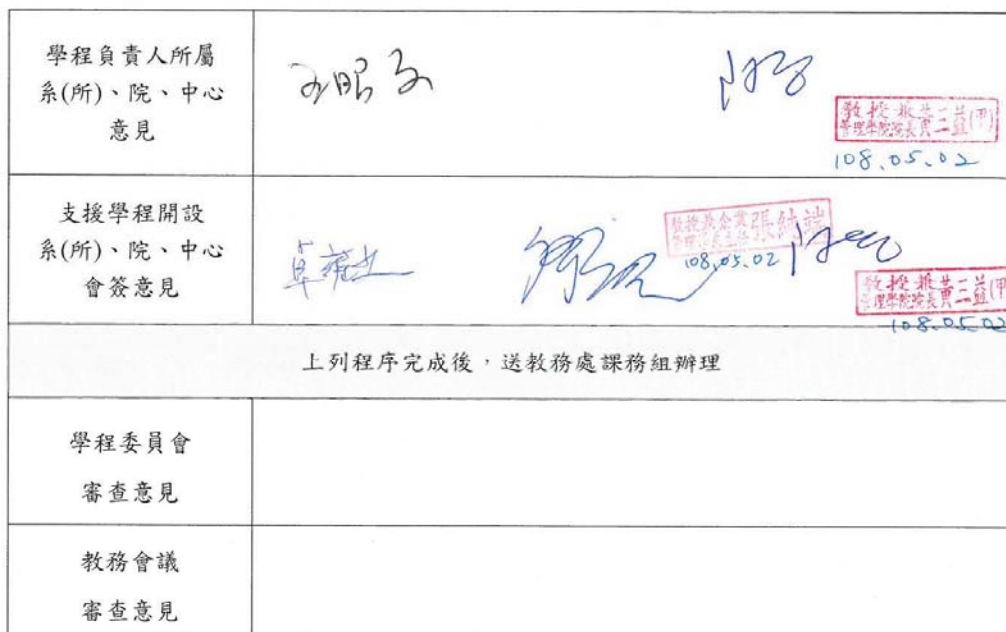 學程負責人所屬
系(所)、院、中心
意見
教授兼
管理學院院長黃三益(甲)
108.05.02
支援學程開設
系(所)、院、中心
會簽意見
教授兼企業
管理學系主任張純端
108.05.02
教授兼
管理學院院長黃三益(甲)
108.05.02
上列程序完成後，送教務處課務組辦理
學程委員會
審查意見
教務會議
審查意見